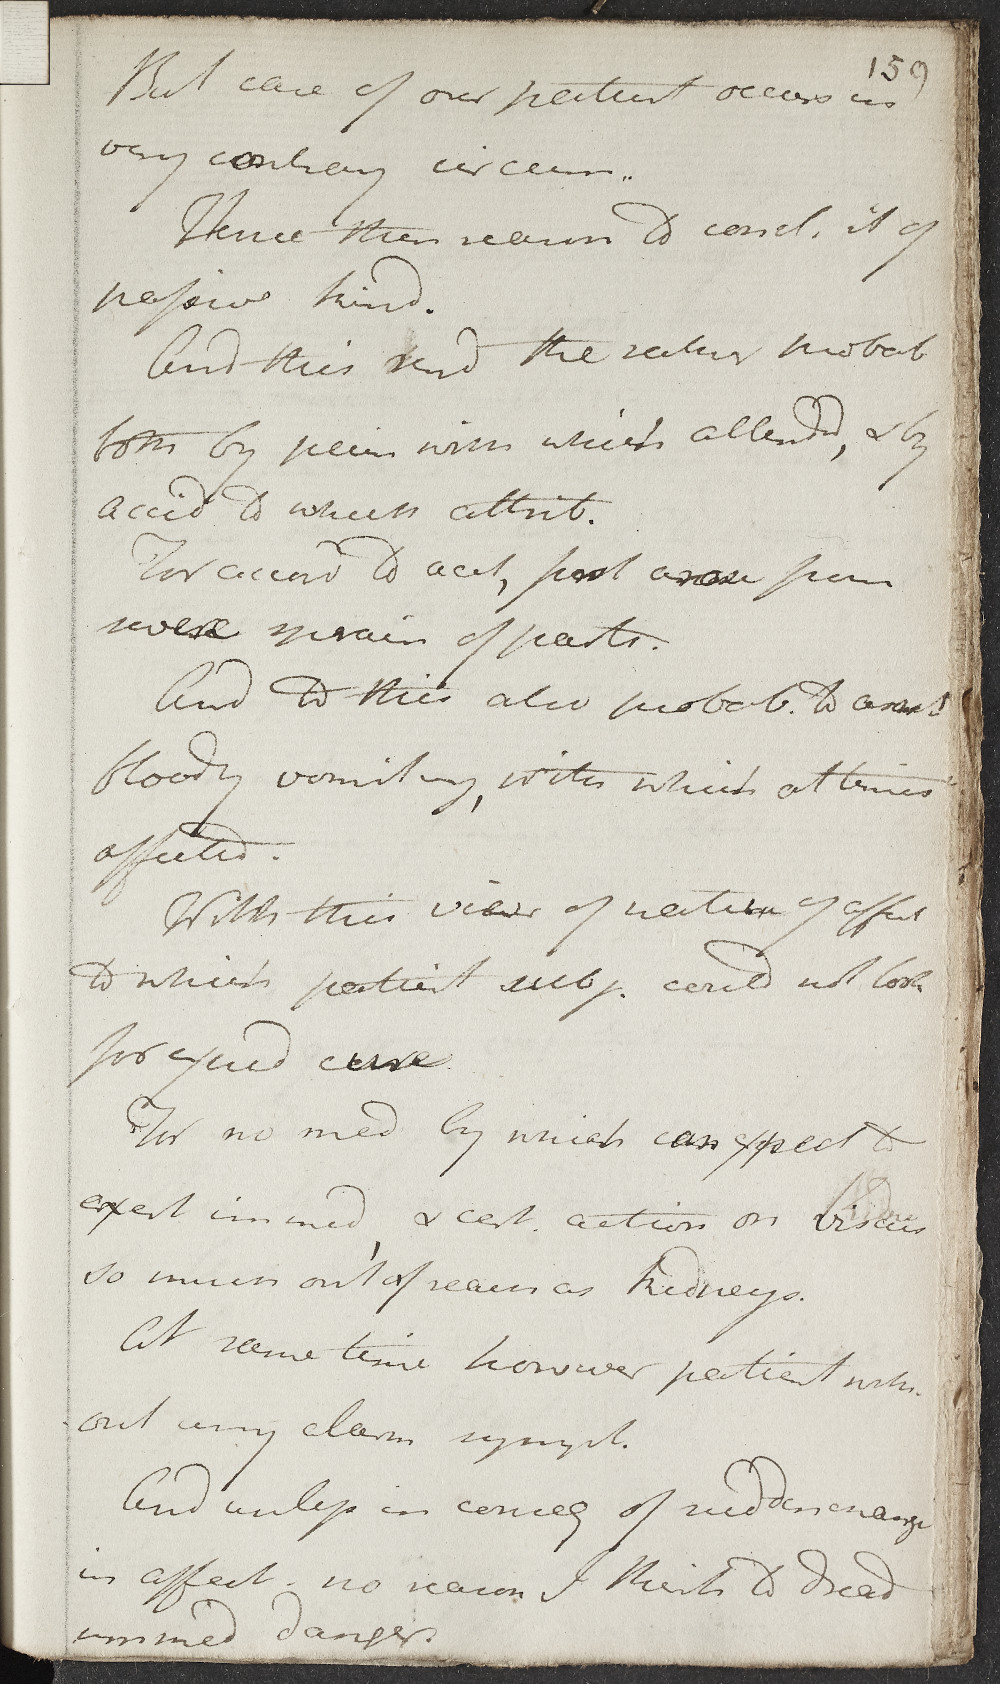 159
But case of our patient occurs in
very contrary circum..
Hence then reason to concl. it of
passive kind.
And this rend the rather probab
both by pain with which attendd, & by
accid to which attrib.
For accord to acct, first arose from
severe sprain of parts.
And to this also probab. to
bloody vomiting, with which at times
affected.
With this view of nature of affect
to which patient subj. could not look
for speed cure
For no med by which can expect to
exert immed, & cert. action on viscus
so much out of reach as kidneys.
At same time however patient with-
out any alarm sympt.
And unless in conseq of sudden change
in affect. no reason I think to dread
immed danger.